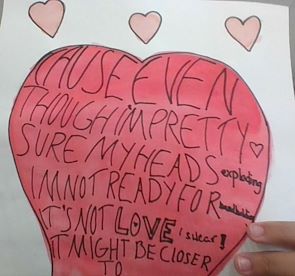 'CAUSE EVEN
THOUGH I'M PRETTY
SURE MY HEADS exploding
I'M NOT READY FOR
IT'S NOT LOVE i swear!
IT MIGHT BE CLOSER
TO